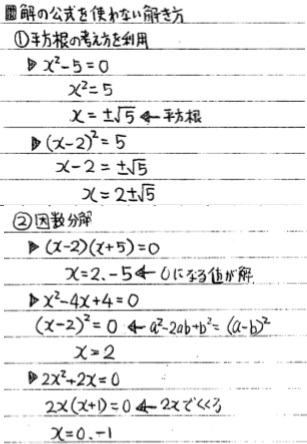 ■解の公式を使わない解き方
①平方根の考え方を利用
▷ x²-5=0
x²=5
x=±√5 ← 平方根
▷ (x-2)²=5
x-2=±√5
x=2±√5
②因数分解
▷ (x-2)(x+5)=0
x=2、-5 ← 0になる値が解
▷ x²-4x+4=0
(x-2)²=0 ← a²-2ab+b²=(a-b)²
x=2
▷ 2x²+2x=0
2x(x+1)=0 ← 2xでくくる
x=0、-1